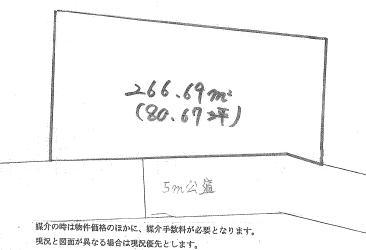 266.69m²
(80.67坪)
5m公道
媒介の時は物件価格のほかに、媒介手数料が必要となります。
現況と図面が異なる場合は現況優先とします。